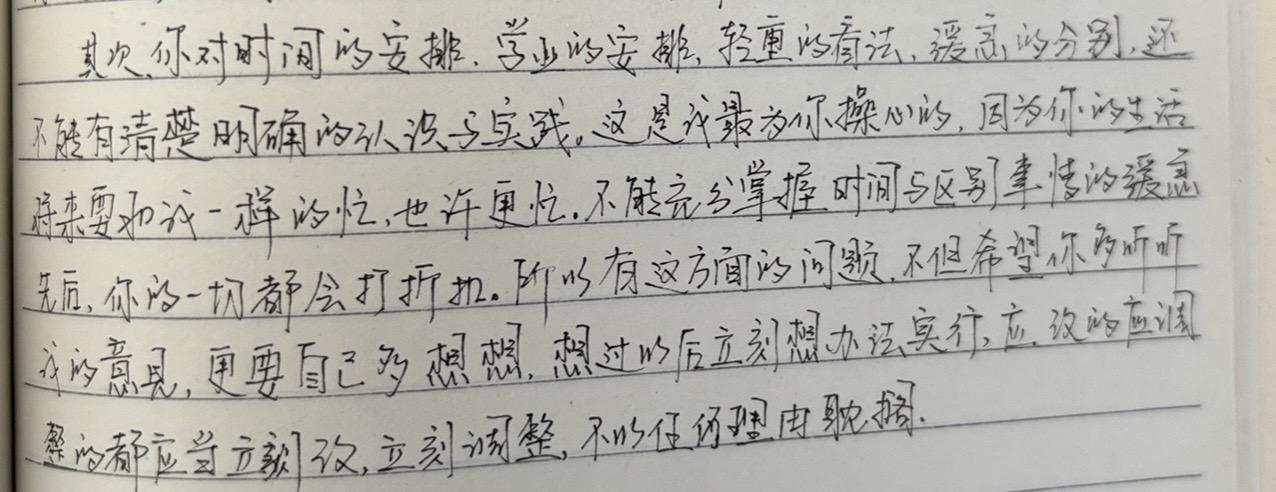 其次,你对时间的安排,学业的安排,轻重的看法,缓急的分别,还
不能有清楚明确的认识与实践。这是我最为你操心的,因为你的生活
将来要和我一样的忙,也许更忙。不能充分掌握时间与区别事情的缓急
先后,你的一切都会打折扣。所以有这方面的问题,不但希望你多听听
我的意见,更要自己多想想,想过以后立刻想办法实行,应改的应调
整的都应当立刻改,立刻调整,不以任何理由耽搁.